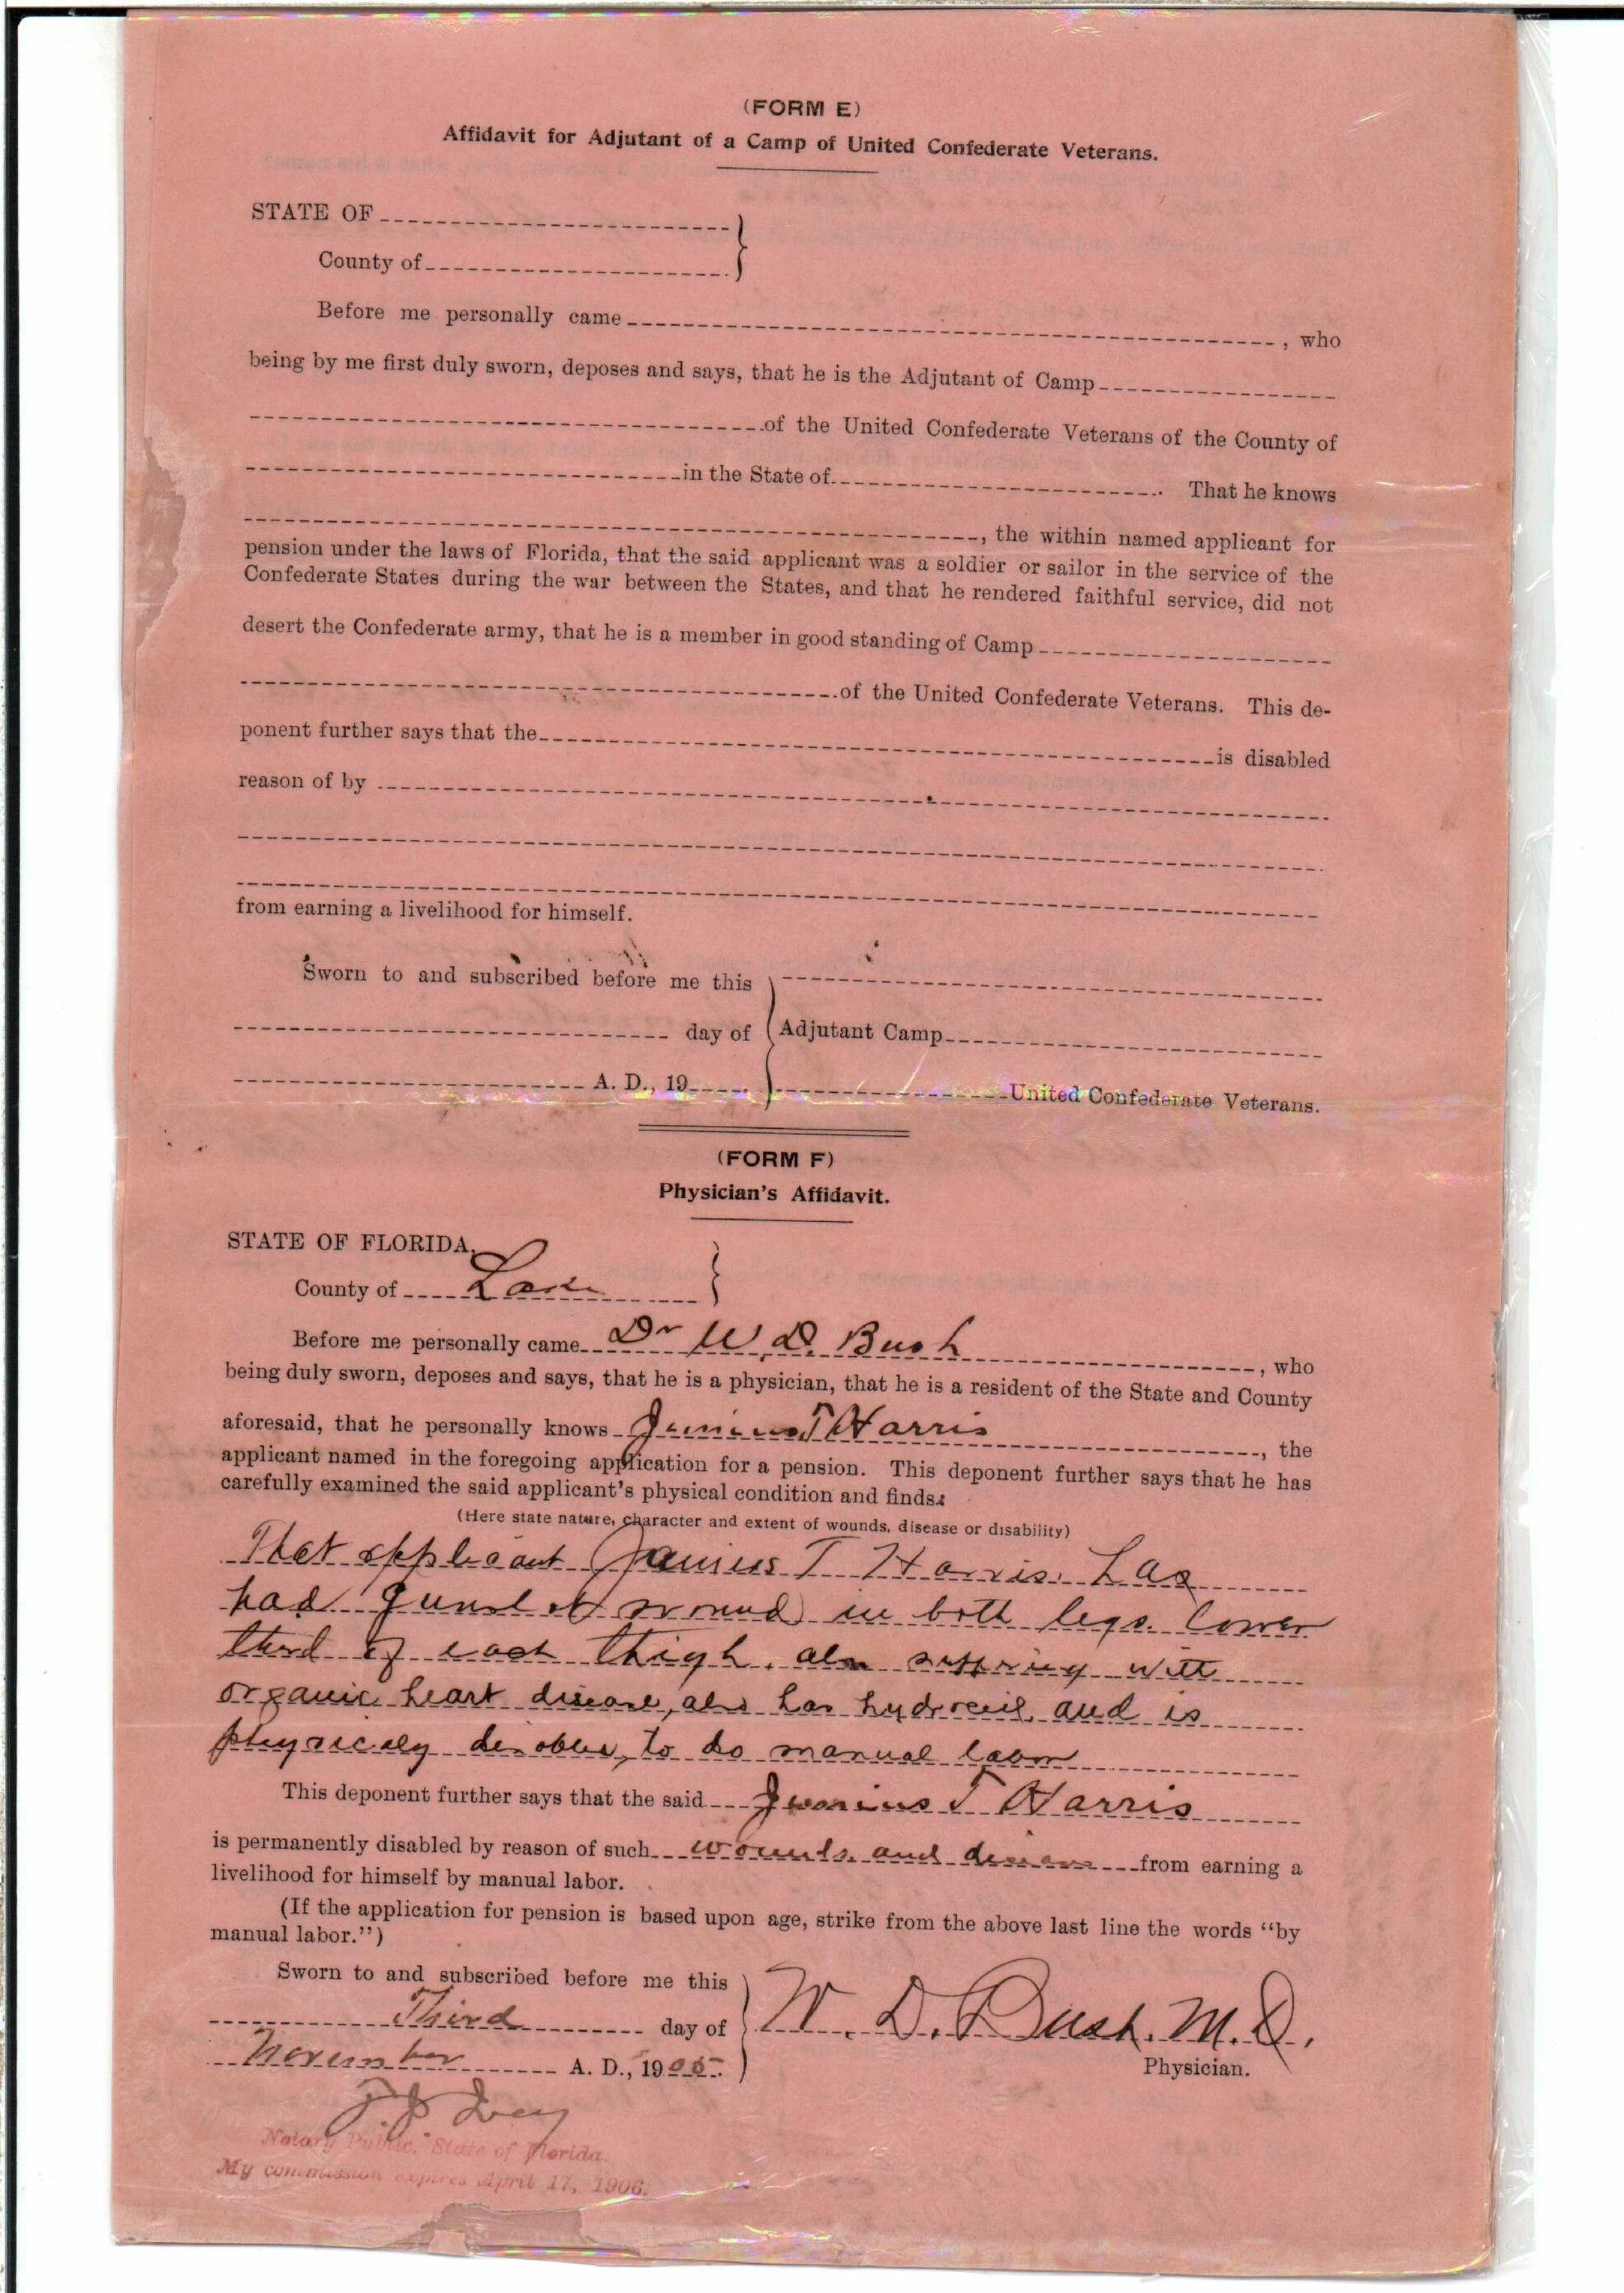 (FORM E)
Affidavit for Adjutant of a Camp of United Confederate Veterans.
STATE OF
County of
Before me personally came , who
being by me first duly sworn, deposes and says, that he is the Adjutant of Camp
of the United Confederate Veterans of the County of
in the State of . That he knows
, the within named applicant for
pension under the laws of Florida, that the said applicant was a soldier or sailor in the service of the
Confederate States during the war between the States, and that he rendered faithful service, did not
desert the Confederate army, that he is a member in good standing of Camp
of the United Confederate Veterans. This de-
ponent further says that the is disabled
reason of by
from earning a livelihood for himself.
Sworn to and subscribed before me this
day of Adjutant Camp
A. D., 19 United Confederate Veterans.
(FORM F)
Physician's Affidavit.
STATE OF FLORIDA,
County of Lake
Before me personally came Dr W. D. Bush , who
being duly sworn, deposes and says, that he is a physician, that he is a resident of the State and County
aforesaid, that he personally knows Junius T Harris , the
applicant named in the foregoing application for a pension. This deponent further says that he has
carefully examined the said applicant's physical condition and finds:
(Here state nature, character and extent of wounds, disease or disability)
That applicant Junius T Harris. has
had gunshot wound in both legs. lower
third of each thigh. also suffering with
organic heart disease, also has hydrocele, and is
physicaly to do manual labor
This deponent further says that the said Junius T Harris
is permanently disabled by reason of such wounds. and disease from earning a
livelihood for himself by manual labor.
(If the application for pension is based upon age, strike from the above last line the words "by
manual labor.")
Sworn to and subscribed before me this
Third day of W. D. Bush. M.D.
November A. D., 1905. Physician.
Notary Public, State of Florida.
My commission expires April 17, 1906.